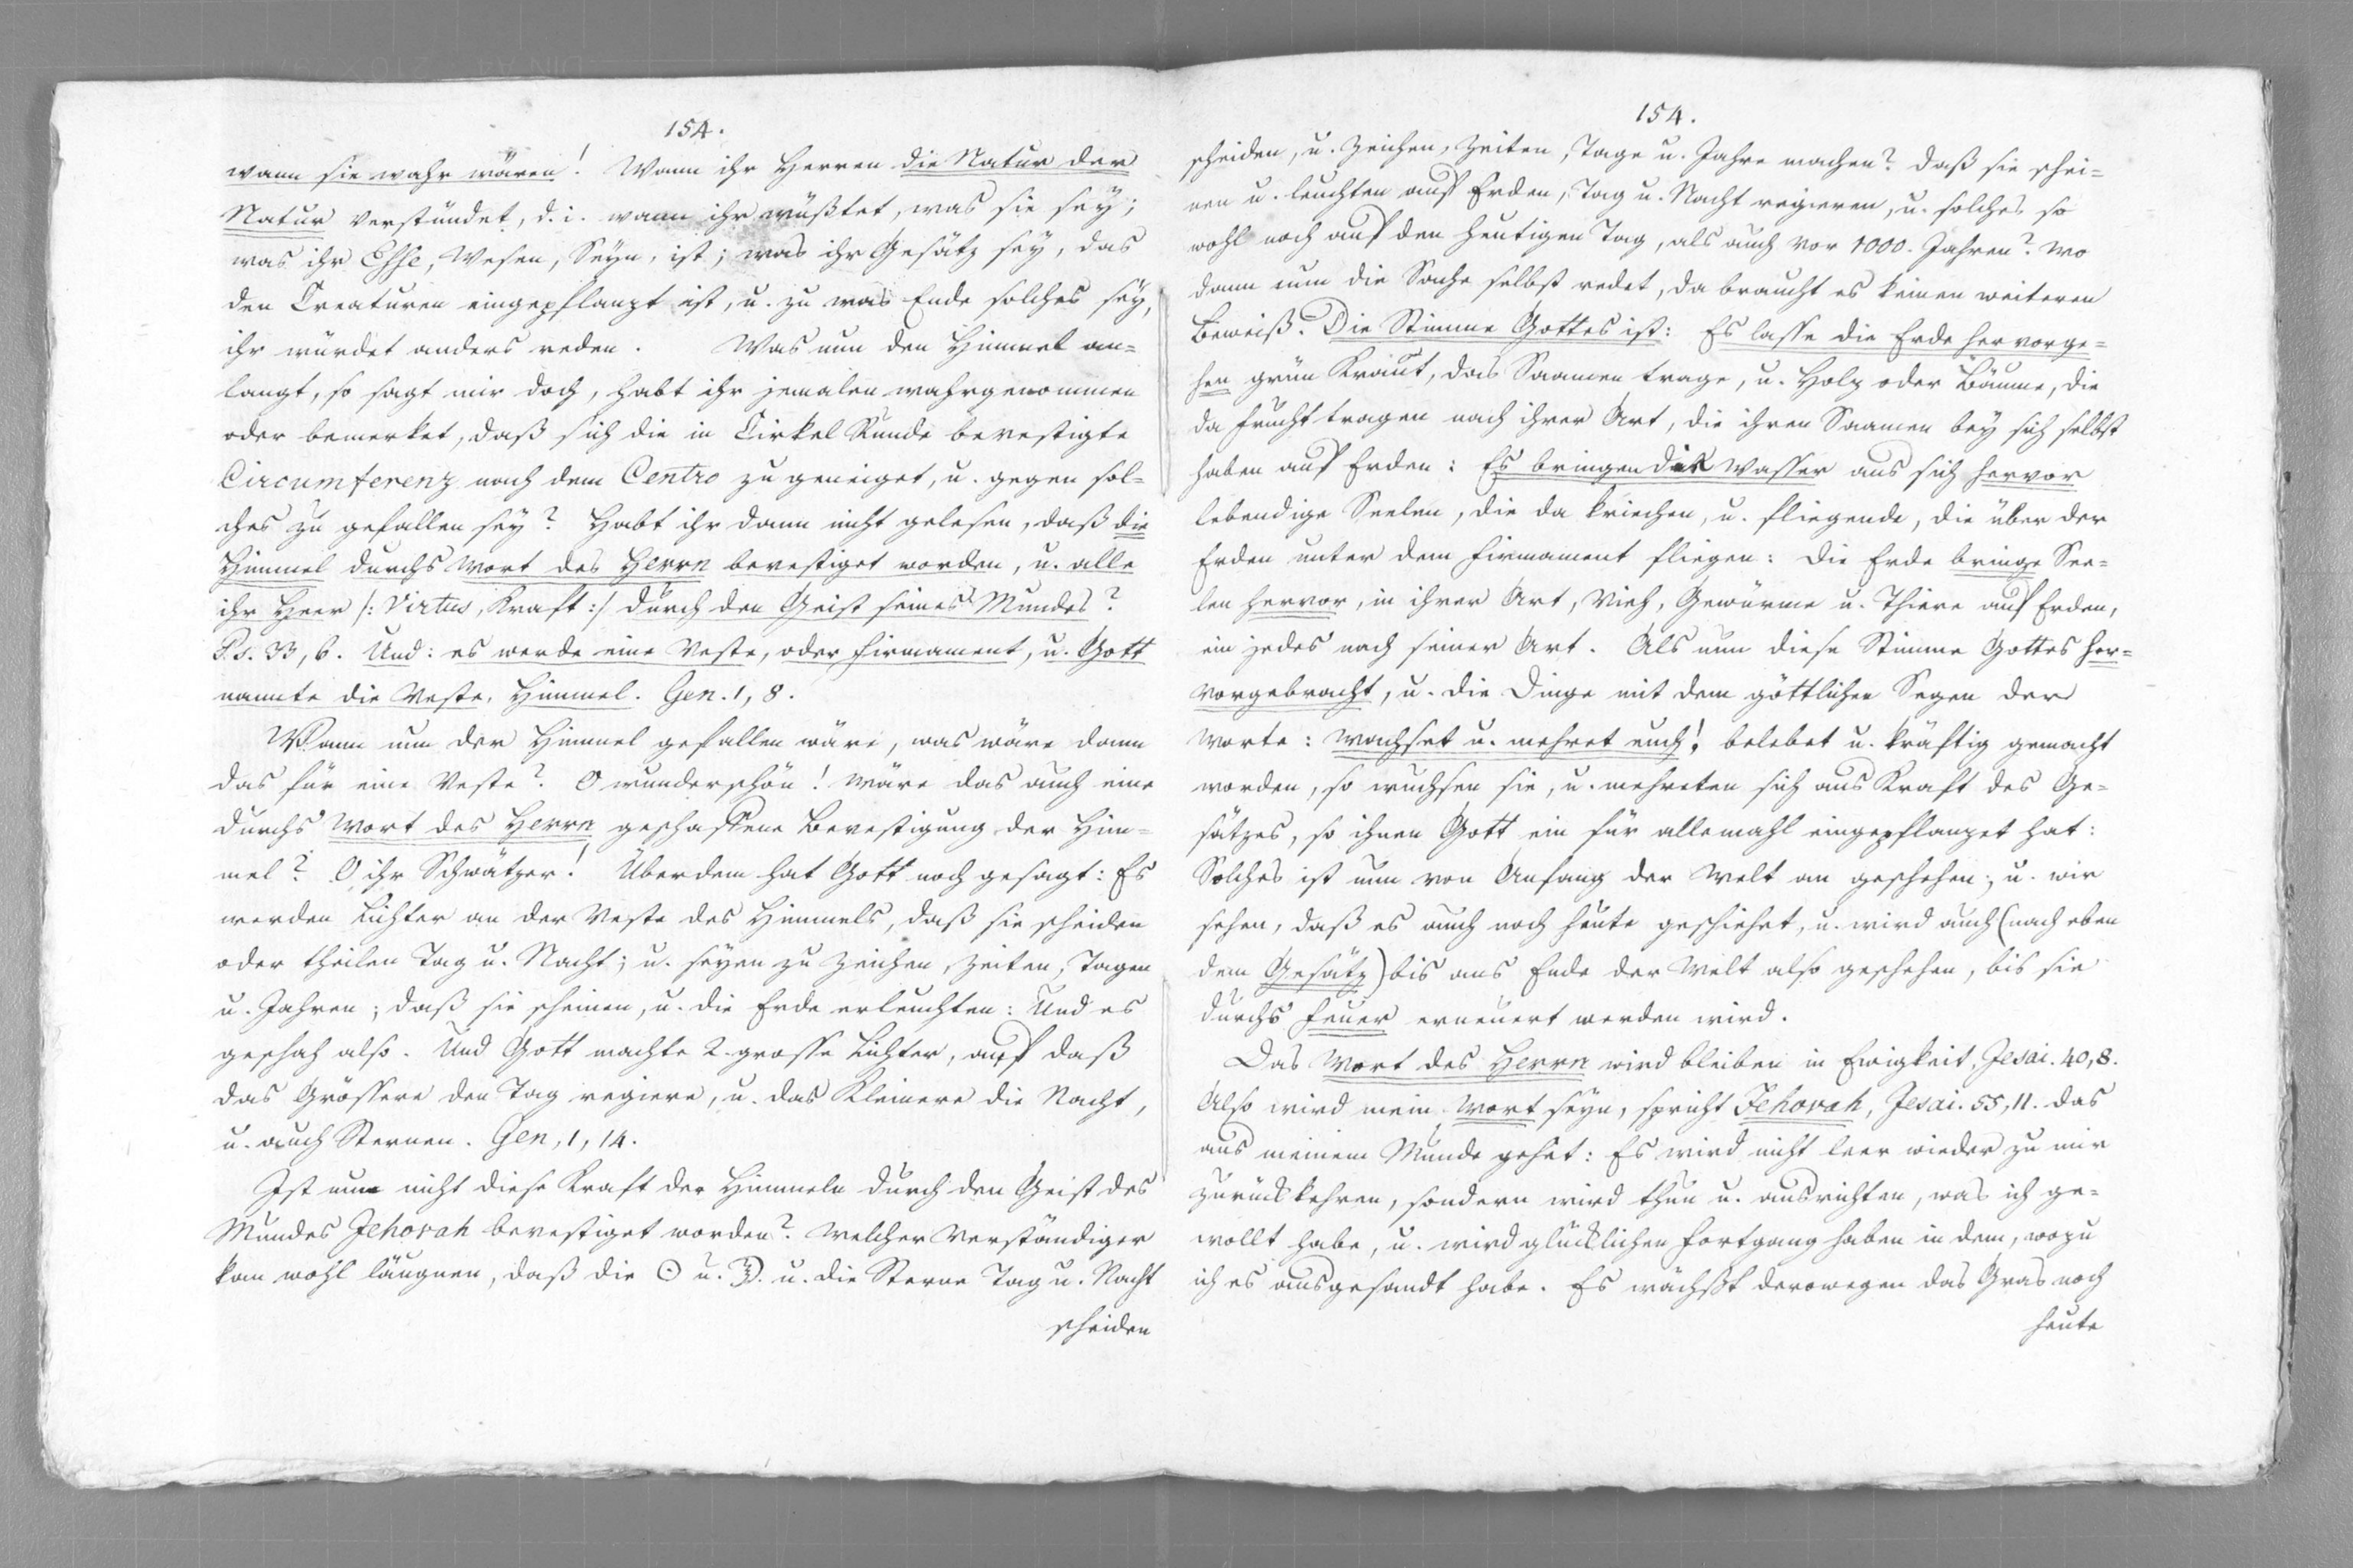 154.
wann sie wahr wären! Wann ihr Herren die Natur der
Natur verstündet, d. i. wann ihr wüßtet, was sie sey;
was ihr Esse, Wesen, Seyn, ist; was ihr Gesätz sey, das
den Creaturen eingepflanzt ist, u. zu was Ende solches sey,
ihr würdet anders reden. Was nun den Himmel an-
langt, so sagt mir doch, habt ihr jemalen wahrgenommen
oder bemerket, daß sich die in Cirkel Runde bevestigte
Circumferenz nach dem Centro zu geneiget, u. gegen sol-
ches zu gefallen sey? Habt ihr dann nicht gelesen, daß die
Himmel durchs Wort des Herrn bevestiget worden, u. alle
ihr Heer /: Virtus, Kraft :/ durch den Geist seines Mundes?
Ps. 33, 6. Und: es werde eine Veste, oder Firmament, u. Gott
nannte die Veste, Himmel. Gen. 1, 8.
Wann nun der Himmel gefallen wäre, was wäre dann
das für eine Veste? O wunderschön! wäre das auch eine
durchs Wort des Herrn geschaffene Bevestigung der Him-
mel? O ihr Schwätzer! Überdem hat Gott noch gesagt: Es
werden Lichter an der Veste des Himmels, daß sie scheiden
oder theilen Tag u. Nacht; u. seyen zu Zeichen, Zeiten, Tagen
u. Jahren; daß sie scheinen, u. die Erde erleuchten: Und es
geschah also. Und Gott machte 2. grosse Lichter, auf daß
das Grössere den Tag regiere, u. das Kleinere die Nacht,
u. auch Sternen. Gen, 1, 14.
Ist nun nicht diese Kraft der Himmeln durch den Geist des
Mundes Jehovah bevestiget worden? Welcher Verständiger
kan wohl läugnen, daß die ☉ u. ☽. u. die Sterne Tag u. Nacht
scheiden
154.
scheiden, u. Zeichen, Zeiten, Tage u. Jahre machen? daß sie schei-
nen u. leuchten auf Erden, Tag u. Nacht regieren, u. solches so
wohl noch auf den heutigen Tag, als auch vor 1000. Jahren? Wo
dann nun die Sache selbst redet, da braucht es keinen weiteren
Beweiß. Die Stimme Gottes ist: Es lasse die Erde hervorge-
hen grün Kraut, das Saamen trage, u. Holz oder Bäume, die
da Frucht tragen nach ihrer Art, die ihren Saamen bey sich selbst
haben auf Erden: Es bringen die Wasser aus sich hervor
lebendige Seelen, die da kriechen, u. fliegende, die über der
Erden unter dem Firmament fliegen: Die Erde bringe See-
len hervor, in ihrer Art, Vieh, Gewürme u. Thiere auf Erden,
ein jedes nach seiner Art. Als nun diese Stimme Gottes her-
vorgebracht, u. die Dinge mit dem göttlichen Segen der
Worte: Wachset u. mehret euch!, belebet u. kräftig gemacht
worden, so wuchsen sie, u. mehreten sich aus Kraft des Ge-
sätzes, so ihnen Gott ein für allemahl eingepflanzet hat:
Solches ist nun von Anfang der Welt an geschehen; u. wir
sehen, daß es auch noch heute geschiehet, u. wird auch (nach eben
dem Gesätz) bis ans Ende der Welt also geschehen, bis sie
durchs Feuer erneuert werden wird.
Das Wort des Herrn wird bleiben in Ewigkeit, Jesai. 40, 8.
Also wird mein Wort seyn, spricht Jehovah, Jesai. 55, 11. das
aus meinem Munde gehet: Es wird nicht leer wieder zu mir
zurückkehren, sondern wird thun u. ausrichten, was ich ge-
wollt habe, u. wird glücklichen Fortgang haben in dem, wozu
ich es ausgesandt habe. Es wächßt derowegen das Gras noch
heute